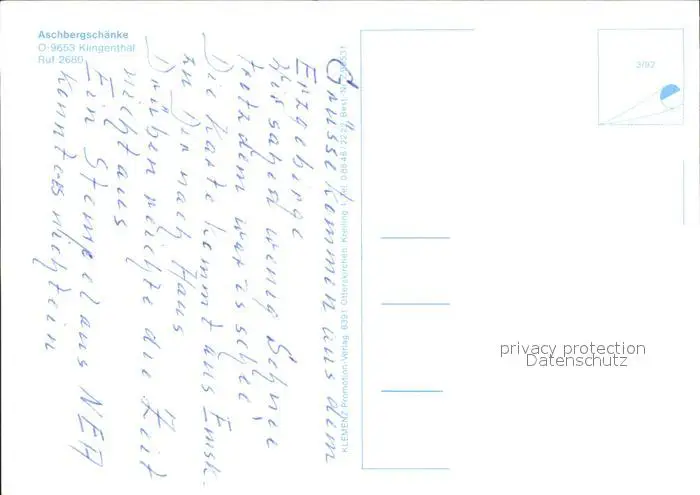 Aschbergschänke
O-9653 Klingenthal
Ruf 2680
Grüsse kommen aus dem
Erzgebirge
Wir sahen wenig Schnee
trotzdem war es schee
Die Karte kommt aus Emsk.
zu Dir nach Haus
Drüben reichte die Zeit
nicht aus
Ein Stempel aus NEA
konnt es nicht sein
KLEMENZ Promotion-Verlag, 8391 Otterskirchen, Kreiling
Best.-Nr.
3/92
privacy protection
Datenschutz